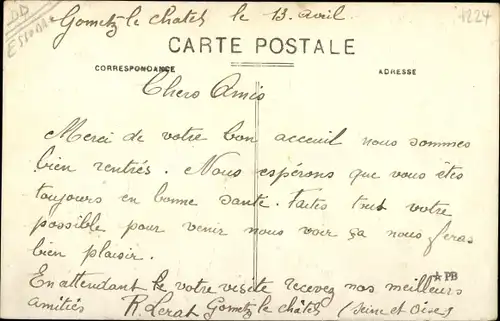 DD
ESSONNE
Gometz le Chatel le 13 avril
1224
CARTE POSTALE
CORRESPONDANCE
ADRESSE
Chers Amis
Merci de votre bon acceuil nous sommes
bien rentrés. Nous espérons que vous êtes
toujours en bonne santé. Faites tout votre
possible pour venir nous voir ça nous feras
bien plaisir.
PB
En attendant le votre visite recevez nos meilleurs
amitiés R. Lerat Gometz le châtel (Seine et Oise)